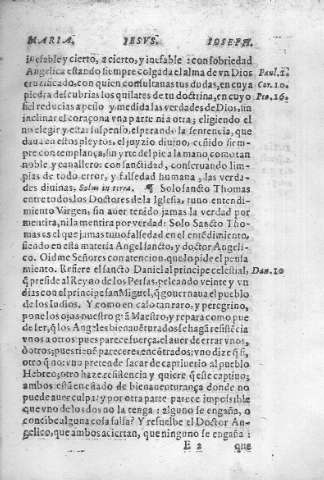 MARIA. JESVS. IOSEPH.
inefable y cierto, a cierto, y inefable: con sobriedad
Angelica estando siempre colgada el alma de vn Dios
crucificado, con quien consultanas tus dudas, en cuya
piedra descubrias los quilates de tu doctrina, en cuyo
fiel reducias a peso y medida las verdades de Dios, sin
inclinar el coraçon a vna parte ni a otra; eligiendo el
no elegir y estar suspenso, esperando la sentencia, que
daua en estos pleytos, el juyzio diuino, ceñido siem-
pre con templança, sin yrte del pie a la mano, como tan
noble, y cauallero: con sanctidad, conseruando lim-
pias de todo error, y falsedad humana, las verda-
des diuinas, Salus in terra. ¶ Solo sancto Thomas
entre todos los Doctores de la Iglesia, tuuo entendi-
miento Virgen, sin auer tenido jamas la verdad por
mentira, ni la mentira por verdad: Solo Sancto Tho-
mas es el que jamas tuuo falsedad en el entēdimiento,
siendo en esta materia Angel sancto, y doctor Angeli-
co. Oidme Señores con atencion, que lo pide el pensa
miento. Refiere el sancto Daniel al principe celestial,
q̃ preside al Reyno de los Persas, peleando veinte y vn
dias con el principe san Miguel, q̃ gouernaua el pueblo
de los Iudios. Y como en caso tan raro, y peregrino,
pone los ojos nuestro grā Maestro, y repara como pue
de ser, q̃ los Angeles bienauēturados se hagā resistēcia
vnos a otros: pues parece fuerça, el auer de errar vnos,
ò otros; pues tienē pareceres encōtrados; vno dize q̃ si,
otro q̃ no: vno pretende sacar de captiuerio al pueblo
Hebreo, otro haze resistencia y quiere q̃ este captiuo;
ambos estā en estado de bienauenturança donde no
puede auer culpa: y por otra parte parece impossible
que vno de los dos no la tenga: alguno se engaña, o
concibe alguna cosa falsa? Y resuelbe el Doctor An-
gelico, que ambos aciertan, que ninguno se engaña:
E 2 que
Paul. 1.
Cor. 10.
Pro. 16.
Dan. 10